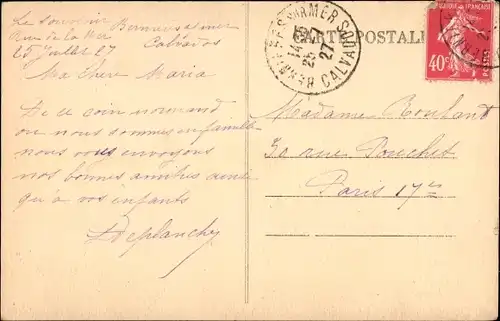 Le Souvenir Bernières s/mer
Rue de la Mer Calvados
25 Juillet 27
CARTE POSTALE
BERNIÈRES-SUR-MER CALVADOS
25 -7
27
40c
POSTES
Ma chère Maria
De ce coin normand
où nous sommes en famille
nous vous envoyons
nos bonnes amitiés ainsi
qu'à vos enfants
Madame
30 rue Pouchet
Paris 17e